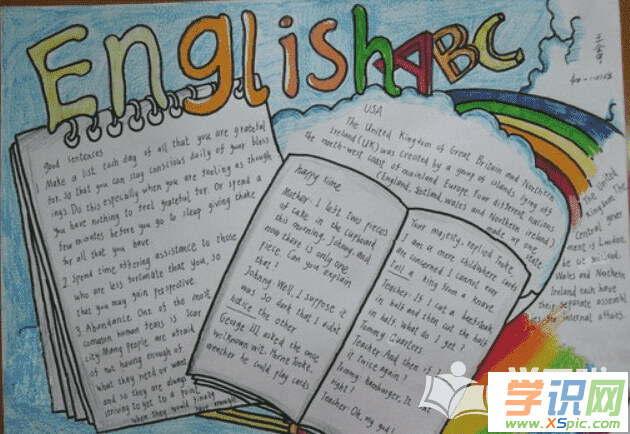 English ABC
good sentences
1 Make a list each day of all that you are grateful
for. so that you can stay conscious daily of your bless
ings. Do this especially when you are feeling as though
you have nothing to feel grateful for. Or spend a
few minutes before you go to sleep giving thanks
for all that you have
2 spend time offering assistance to those
who are less fortunate that you, so
that you may gain perspective.
3 Abundance One of the most
common human fears is scar
city. Many people are afraid
of not having enough of
what they need or want
and so they are always
striving to get to a point
when they would finally
have enough
USA
The United Kingdom of Great Britain and Northern
Ireland (UK) was created by a group of islands lying off
the north-west coast of mainland Europe. Four different nations
(England, Scotland, wales and Northern ireland)
made up one
state
happy time
Mother: I left two pieces
of cake in the cupboard
this morning, Johnny, And
now there is only one
piece. Can you explain
that?
Johnny: Well, I suppose it
was so dark that I didn't
notice the other
George III, asked the once
wellknown wit. Horne Tooke,
wheather he could play cards
Your majesty, replied Tooke,
I am a mere child where cards
are concerned I cannot even
tell a king from a knave
Teacher: If I cut a beefsteak
in half and then cut the half
in half. What do I get?
Tommy: Quarters.
Teacher: And then if I
it twice again?
Tommy: hamburger. It
right!
Teacher: Oh, my god!
The United
Kingdom The
Central gover
ment is London,
Wales and Northern
Ireland each have
their separate assembl
internal affairs.
学识网
www.XSpic.com